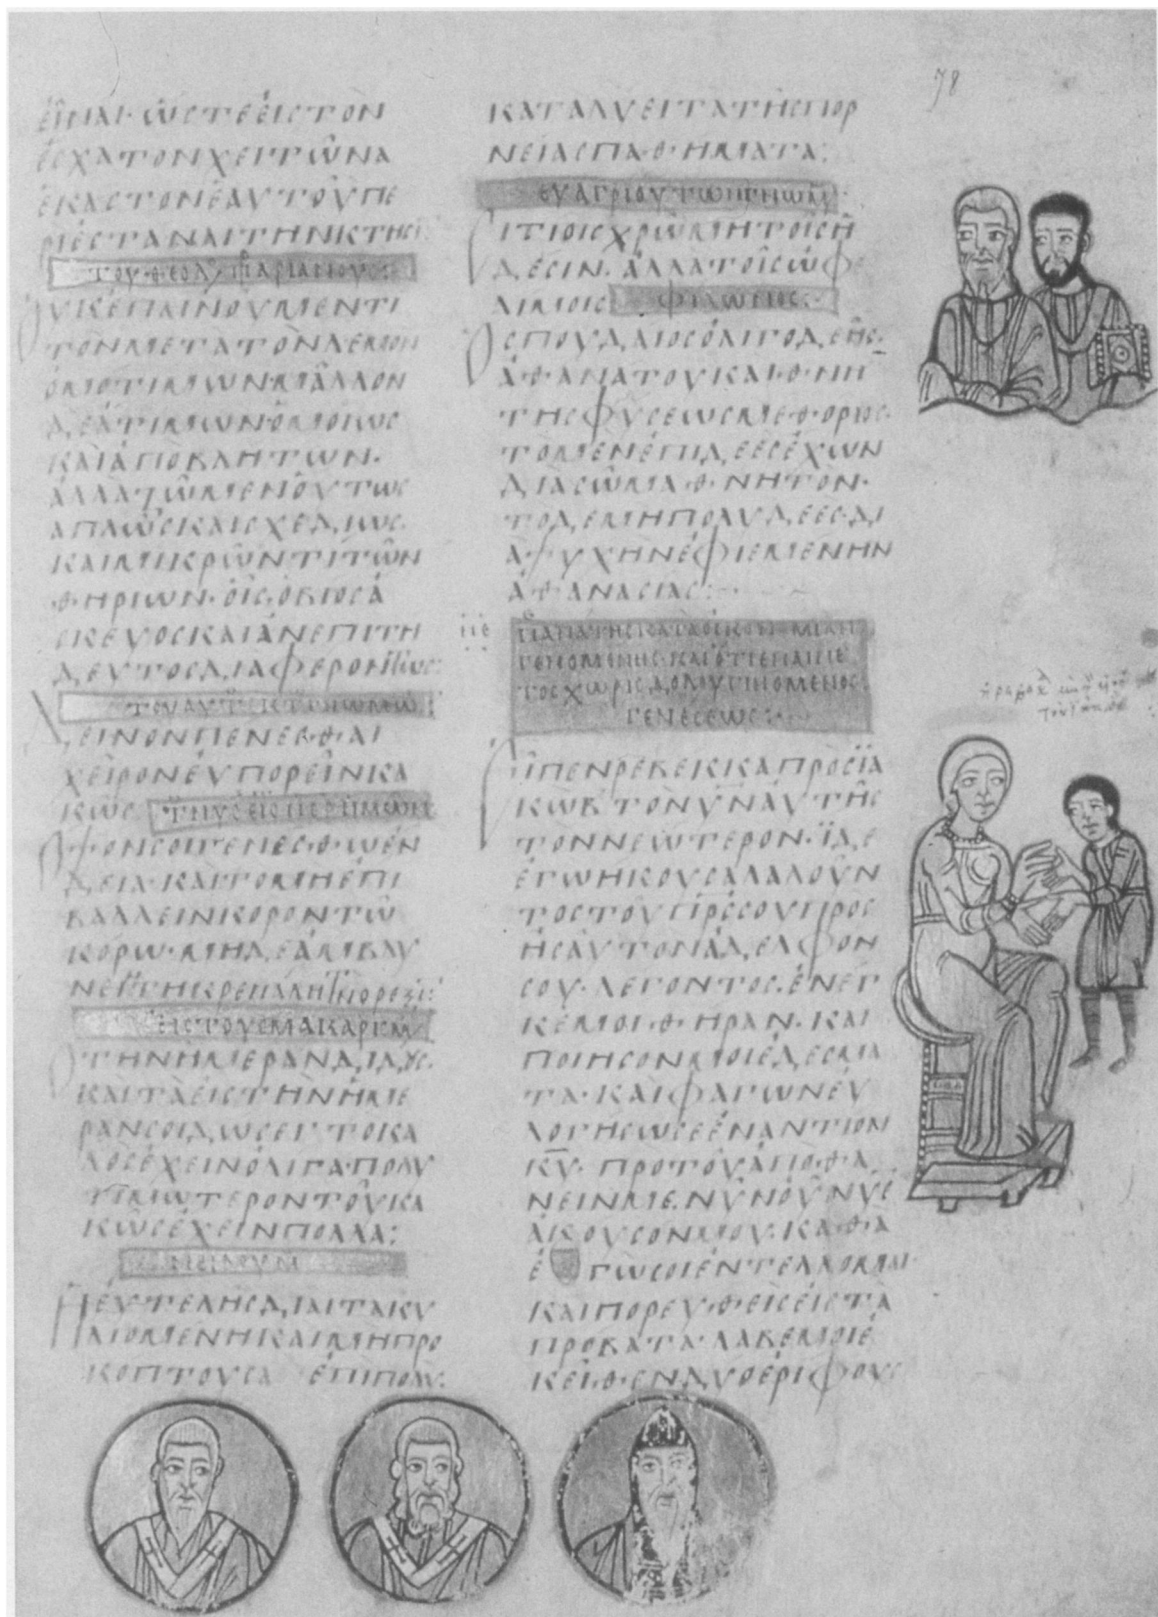 78
ΕἶΝΑΙ· ὥΣΤΕ ΕἰΣ ΤῸΝ
ἜΣΧΑΤΟΝ ΧΕΙΤῶΝΑ
ἝΚΑΣΤΟΝ ἙΑΥΤΟῦ ΠΕ
ΡΙΕΣΤΑΝΑΙ ΤΗΝ ΚΤΗΣΙ
ΤΟΥ ΘΕΟΛ
ΟΥΚ ΕΠΑΙΝΟΥΜΕΝ ΤΙ
ΤΟΝ ΜΕΤΑ ΤΟΝ ΛΕΜΟΝ
ὉΜΟΤΙΜΩΝ ΜᾶΛΛΟΝ
ΔΕ ἈΤΙΜΩΝ ὉΜΟΙΩΣ
ΚΑΙ ἈΠΟΒΛΗΤΩΝ·
ἈΛΛΑ ΤῶΜΕΝ ΟὝΤΩΣ
ΑΠΛῶΣ ΚΑΙ ΣΧΕΔΙΩΣ·
ΚΑΙ ΜΙΚΡῶΝ ΤΙ ΤῶΝ
ΘΗΡΙΩΝ· ΟἷΣ Ὁ ΒΙΟΣ Ἀ
ΣΚΕΥΟΣ ΚΑΙ ἈΝΕΠΙΤΗ
ΔΕΥΤΟΣ ΔΙΑΦΕΡΟΝΤΩΣ:
ΤΟΥ ΑΥΤ
ΔΕΙΝΟΝ ΠΕΝΕΣΘΑΙ
ΧΕῖΡΟΝ ΕΥΠΟΡΕῖΝ ΚΑ
ΚῶΣ
ΟΨΟΝ ΣΟΙ ΓΕΝΕΣΘΩ ἘΝ
ΔΕΙΑ· ΚΑΙ ΤΟ ΜΗ ἘΠΙ
ΒΑΛΛΕΙΝ ΚΟΡΟΝ ΤΩ
ΚΟΡΩ· ΜΗΔΕ ἈΜΒΛΥ
ΕΙΣ ΤΟΥΣ ΜΑΚΑΡ
Ο ΤΗΝ ἩΜΕΡΑΝ ΔΙΔΟΥΣ·
ΚΑΙ ΤΑ ΕΙΣ ΤΗΝ ἩΜΕ
ΡΑΝ ΣΟΙ ΔΩΣΕΙ· ΤΟ ΚΑ
ΛΟΣ ἜΧΕΙΝ ὈΛΙΓΑ ΠΟΛΥ
ΤΙΜΙΩΤΕΡΟΝ ΤΟῦ ΚΑ
ΚῶΣ ἜΧΕΙΝ ΠΟΛΛΑ:
ΝΕΙΛΟΥ Μ
Η ΕΥΤΕΛΗΣ ΔΙΑΙΤΑ ΚΥ
ΛΙΟΜΕΝΗ ΚΑΙ ΜΗ ΠΡΟ
ΚΟΠΤΟΥΣΑ ἘΠΙ ΠΟΛΥ·
ΚΑΤΑΛΥΕΙ ΤΑ ΤΗΣ ΠΟΡ
ΝΕΙΑΣ ΠΑΘΗΜΑΤΑ:
ΕΥΑΓΡΙΟΥ ΤΩΝ ΓΝΩΜ
ΣΙΤΙΟΙΣ ΧΡῶ ΜΗ ΤΟῖΣ Ἡ
ΔΕΣΙΝ· ἈΛΛΑ ΤΟῖΣ ὨΦΕ
ΛΙΜΟΙΣ ΦΙΛΩΝΟΣ:
Ο ΣΠΟΥΔΑΙΟΣ ὈΛΙΓΟΔΕΗΣ·
ἈΘΑΝΑΤΟΥ ΚΑΙ ΘΝΗ
ΤΗΣ ΦΥΣΕΩΣ ΜΕΘΟΡΙΟΣ·
ΤΟ ΜΕΝ ἘΠΙΔΕΕΣ ἜΧΩΝ
ΔΙΑ ΣῶΜΑ ΘΝΗΤΟΝ·
ΤΟ ΔΕ ΜΗ ΠΟΛΥΔΕΕΣ ΔΙ
Ἀ ΨΥΧΗΝ ἘΦΙΕΜΕΝΗΝ
ἈΘΑΝΑΣΙΑΣ:
ΠΕ ΑΠΑΤΗΣ ΚΑΤΑ
ΓΕΝΟΜΕΝΗΣ· ΚΑΙ ὍΤΙ ἘΠΑΙΝΕ
ΤΟΣ ΧΩΡΙΣ ΔΟΛΟΥ ΓΙΝΟΜΕΝΟΣ
ΓΕΝΕΣΕΩΣ:
ΕἶΠΕΝ ΡΕΒΕΚΚΑ ΠΡΟΣ ΪΑ
ΚΩΒ ΤΟΝ ΥΝ ΑΥΤῆΣ
ΤΟΝ ΝΕΩΤΕΡΟΝ· ΪΔΕ
ἘΓΩ ἨΚΟΥΣΑ ΛΑΛΟΥΝ
ΤΟΣ ΤΟΥ ΠΡΣ ΣΟΥ ΠΡΟΣ
ΗΣΑΥ ΤΟΝ ἈΔΕΛΦΟΝ
ΣΟΥ· ΛΕΓΟΝΤΟΣ· ἘΝΕΓ
ΚΕ ΜΟΙ ΘΗΡΑΝ· ΚΑΙ
ΠΟΙΗΣΟΝ ΜΟΙ ἘΔΕΣΜΑ
ΤΑ· ΚΑΙ ΦΑΓΩΝ ΕΥ
ΛΟΓΗΣΩ ΣΕ ἘΝΑΝΤΙΟΝ
ΚΥ· ΠΡΟ ΤΟῦ ἈΠΟΘΑ
ΝΕΙΝ ΜΕ· ΝῦΝ ΟὖΝ ΥΕ
ἈΚΟΥΣΟΝ ΜΟΥ· ΚΑΘΑ
ἘΓΩ ΣΟΙ ἘΝΤΕΛΛΟΜΑΙ·
ΚΑΙ ΠΟΡΕΥΘΕΙΣ ΕΙΣ ΤΑ
ΠΡΟΒΑΤΑ· ΛΑΒΕ ΜΟΙ Ἐ
ΚΕΙΘΕΝ ΔΥΟ ἘΡΙΦΟΥΣ